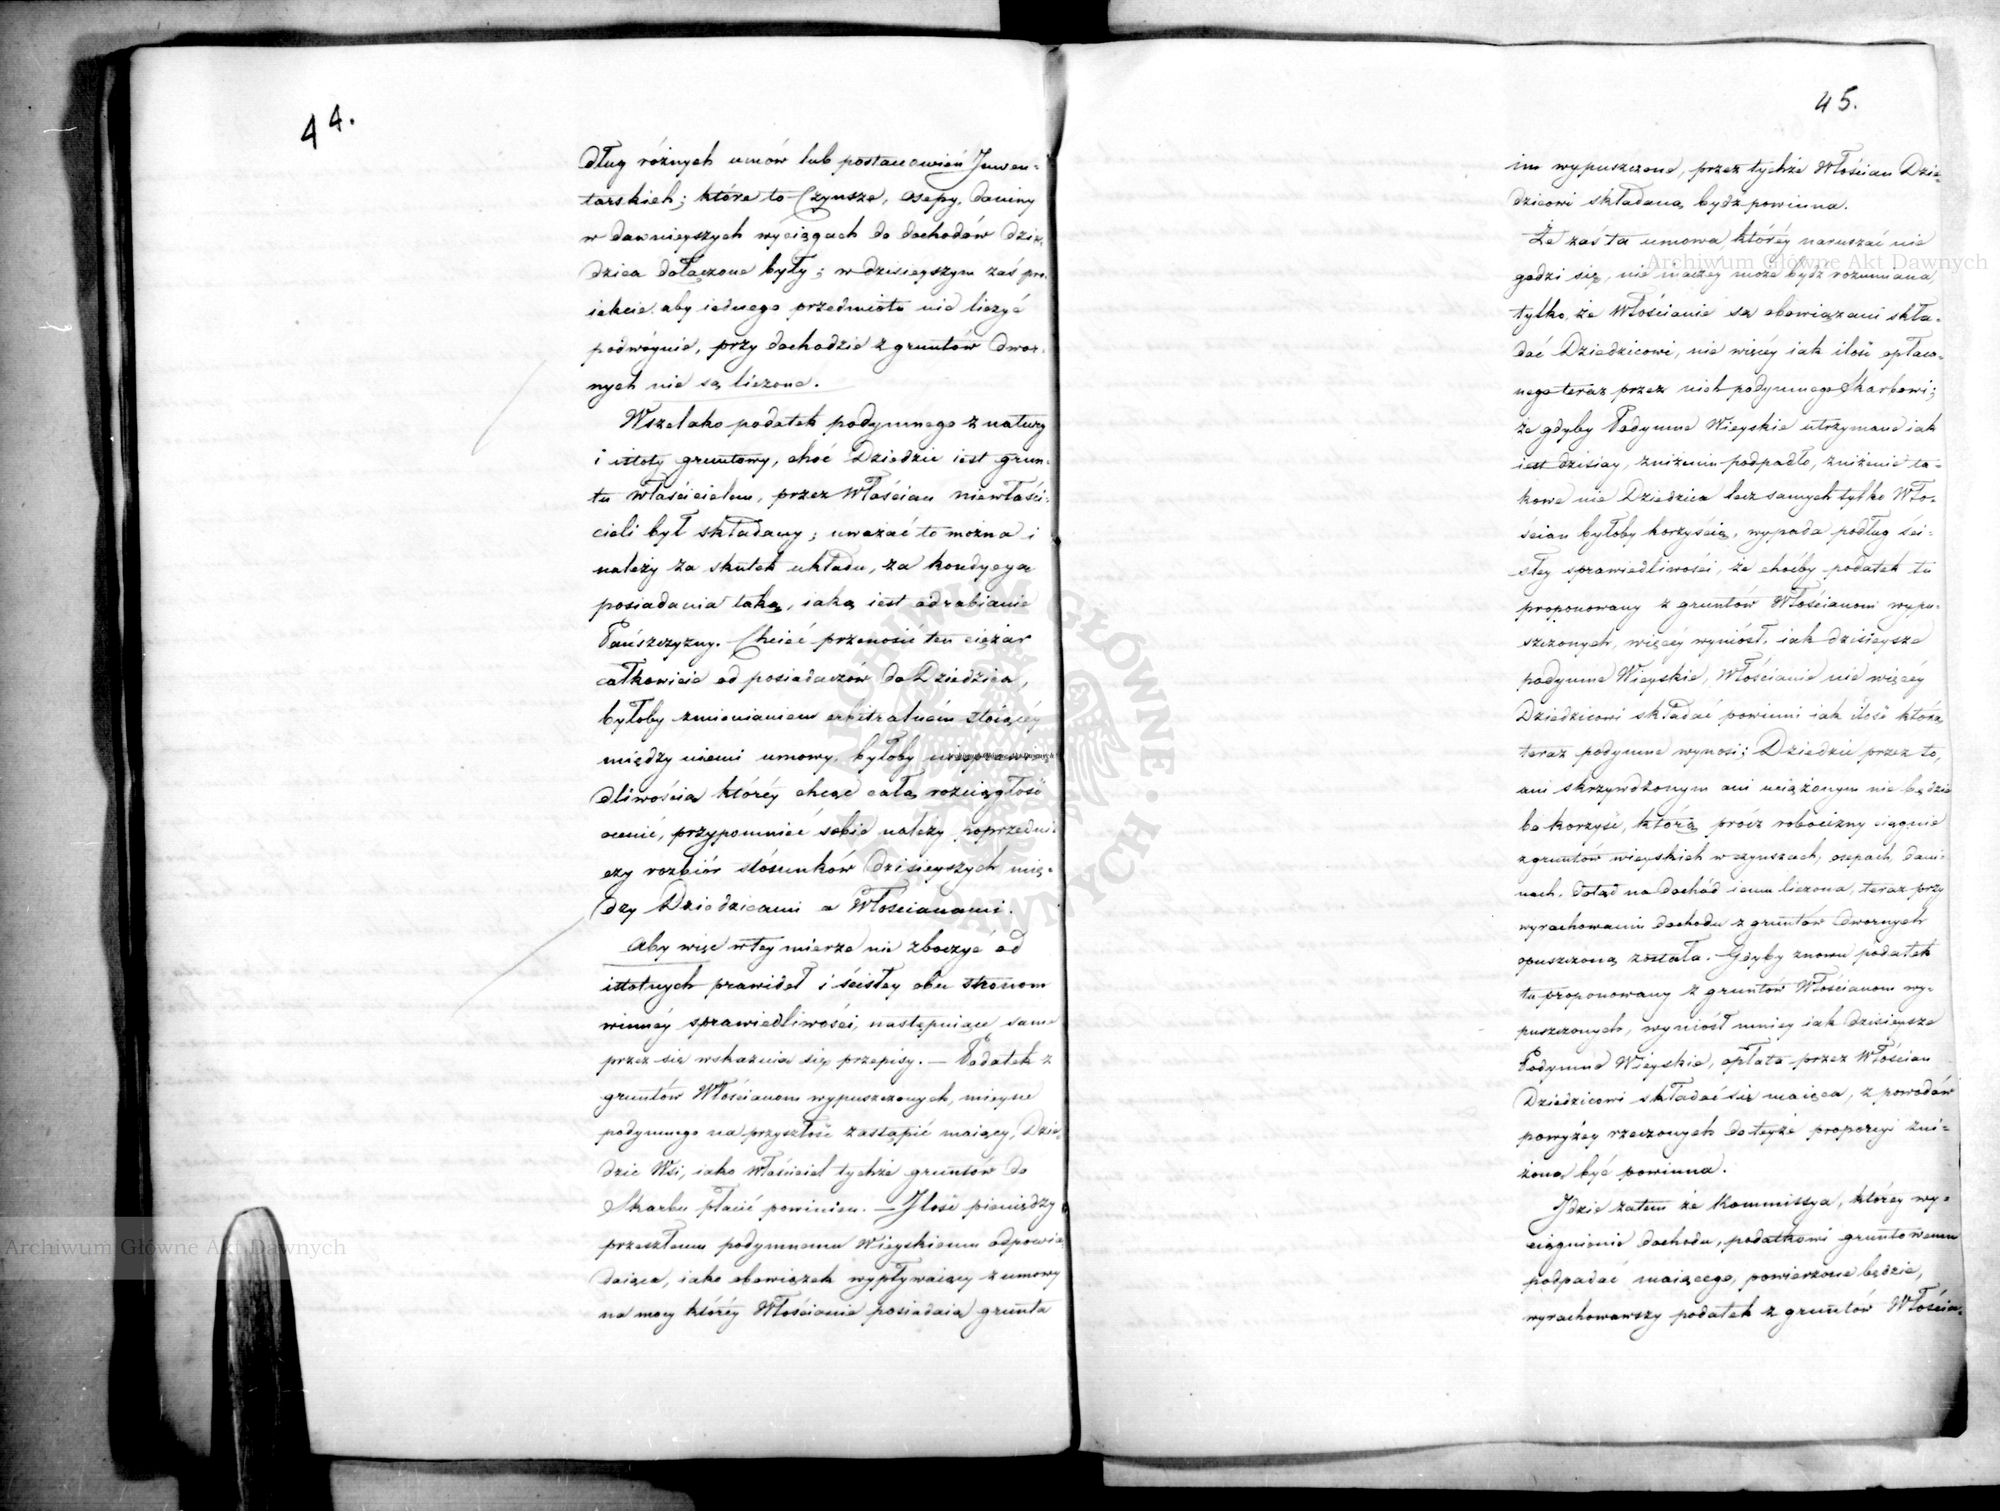 44.
dług różnych umów lub postanowień Inwen-
tarskich; które to Czynsze, osepy, daniny
w dawnieyszych wyciągach do dochodów dzie-
dzica dołączone były; w dzisieyszym zaś pro-
iekcie, aby iednego przedmiotu nie liczyć
podwóynie, przy dochodzie z gruntów dwor-
nych nie są liczone.
Wszelako podatek podymnego z natury
i istoty gruntowy, choć Dziedzic iest grun-
tu właścicielem, przez Włościan niewłaści-
cieli był składany; uważać to można i
należy za skutek układu, za kondycyą
posiadania taką, iaką iest odrabianie
Pańszczyzny. Chcieć przenosić ten ciężar
całkowicie od posiadaczów do Dziedzica,
byłoby zmienianiem arbitralném stoiącéy
między niemi umowy, byłoby niesprawie-
dliwością któréy chcąc całą rozciągłość
ocenić, przypomnieć sobie należy poprzedni-
czy rozbiór stósunków dzisieyszych mię-
dzy Dziedzicami a Włościanami.
Aby więc w téy mierze nie zboczyć od
istotnych prawideł i ścisłéy obu stronom
winnéy sprawiedliwości, następuiące same
przez się wskazuią się przepisy. — Podatek z
gruntów Włościanom wypuszczonych, mieysce
podymnego na przyszłość zastąpić maiący, Dzie-
dzic Wsi, iako Właściciel tychże gruntów do
Skarbu płacić powinien. — Ilość pieniędzy
przeszłemu podymnemu Wieyskiemu odpowia-
daiąca, iako obowiązek wypływaiący z umowy
na mocy któréy Włościanie posiadaią grunta
45.
im wypuszczone, przez tychże Włościan Dzie-
dzicowi składaną bydź powinna.
Że zaś ta umowa któréy naruszać nie
godzi się, nie inaczéy może bydź rozumiana,
tylko, że Włościanie są obowiązani skła-
dać Dziedzicowi, nie więcéy iak ilość opłaco-
nego teraz przez nich podymnego Skarbowi;
że gdyby Podymne Wieyskie utrzymane iak
iest dzisiay, zniżeniu podpadło, zniżenie ta-
kowe nie Dziedzica lecz samych tylko Wło-
ścian byłoby korzyścią, wypada podług ści-
słéy sprawiedliwości, że choćby podatek tu
proponowany z gruntów Włościanom wypu-
szczonych, więcéy wyniósł, iak dzisieysze
podymne Wieyskie, Włościanie nie więcéy
Dziedzicowi składać powinni iak ilość którą
teraz podymne wynosi; Dziedzic przez to,
ani skrzywdzonym ani uciążonym nie będzie
bo korzyść, którą prócz robocizny ciągnie
z gruntów wieyskich w czynszach, osepach, dani-
nach, dotąd na dochód iemu liczona, teraz przy
wyrachowaniu dochodu z gruntów dwornych
opuszczoną została. Gdyby znowu podatek
tu proponowany z gruntów Włościanom wy-
puszczonych, wyniósł mniéy iak dzisieysze
Podymne Wieyskie, opłata przez Włościan
Dziedzicowi składać się maiąca, z powodów
powyżéy rzeczonych do téyże proporcyi zni-
żoną być powinna.
Idzie zatem że Kommissya, któréy wy-
ciągnienie dochodu, podatkowi gruntowemu
podpadać maiącego, powierzone będzie,
wyrachowawszy podatek z gruntów Włościa-